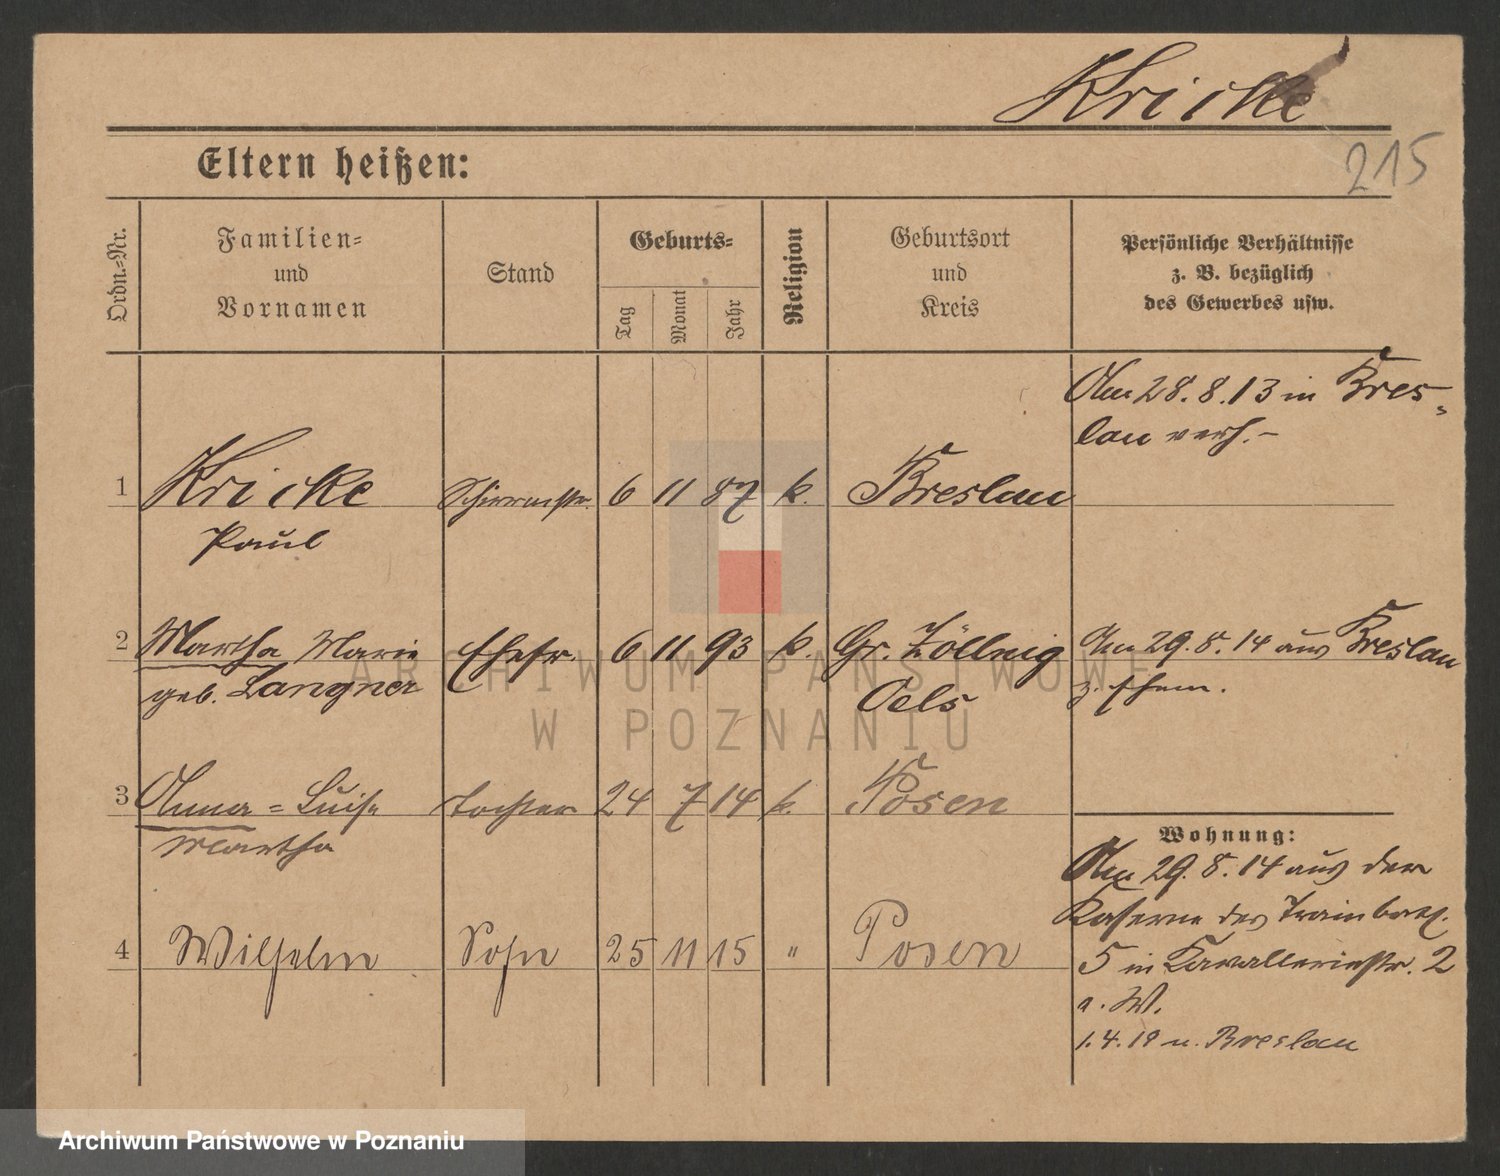 Kricke
215
Eltern heißen:
Ordn.-Nr.
Familien- und Vornamen
Stand
Geburts-
Tag
Monat
Jahr
Religion
Geburtsort und Kreis
Persönliche Verhältnisse z. B. bezüglich des Gewerbes usw.
Am 28. 8. 13 in Bres-
lau verh. –
1 Kricke Schirrmstr. 6 11 87 k. Breslau
Paul
2 Martha Marie Ehefr. 6 11 93 k. Gr. Zöllnig Am 29. 8. 14 aus Breslau
geb. Langner Oels z. Ehem.
3 Anna = Luise Tochter 24 7 14 k. Posen
Martha
Wohnung:
Am 29. 8. 14 aus der
Kaserne des Trainbatl.
4 Wilhelm Sohn 25 11 15 " Posen
5 in Kavalleriestr. 2
a. W.
1. 4. 19 n. Breslau
ARCHIWUM PAŃSTWOWE
W POZNANIU
Archiwum Państwowe w Poznaniu